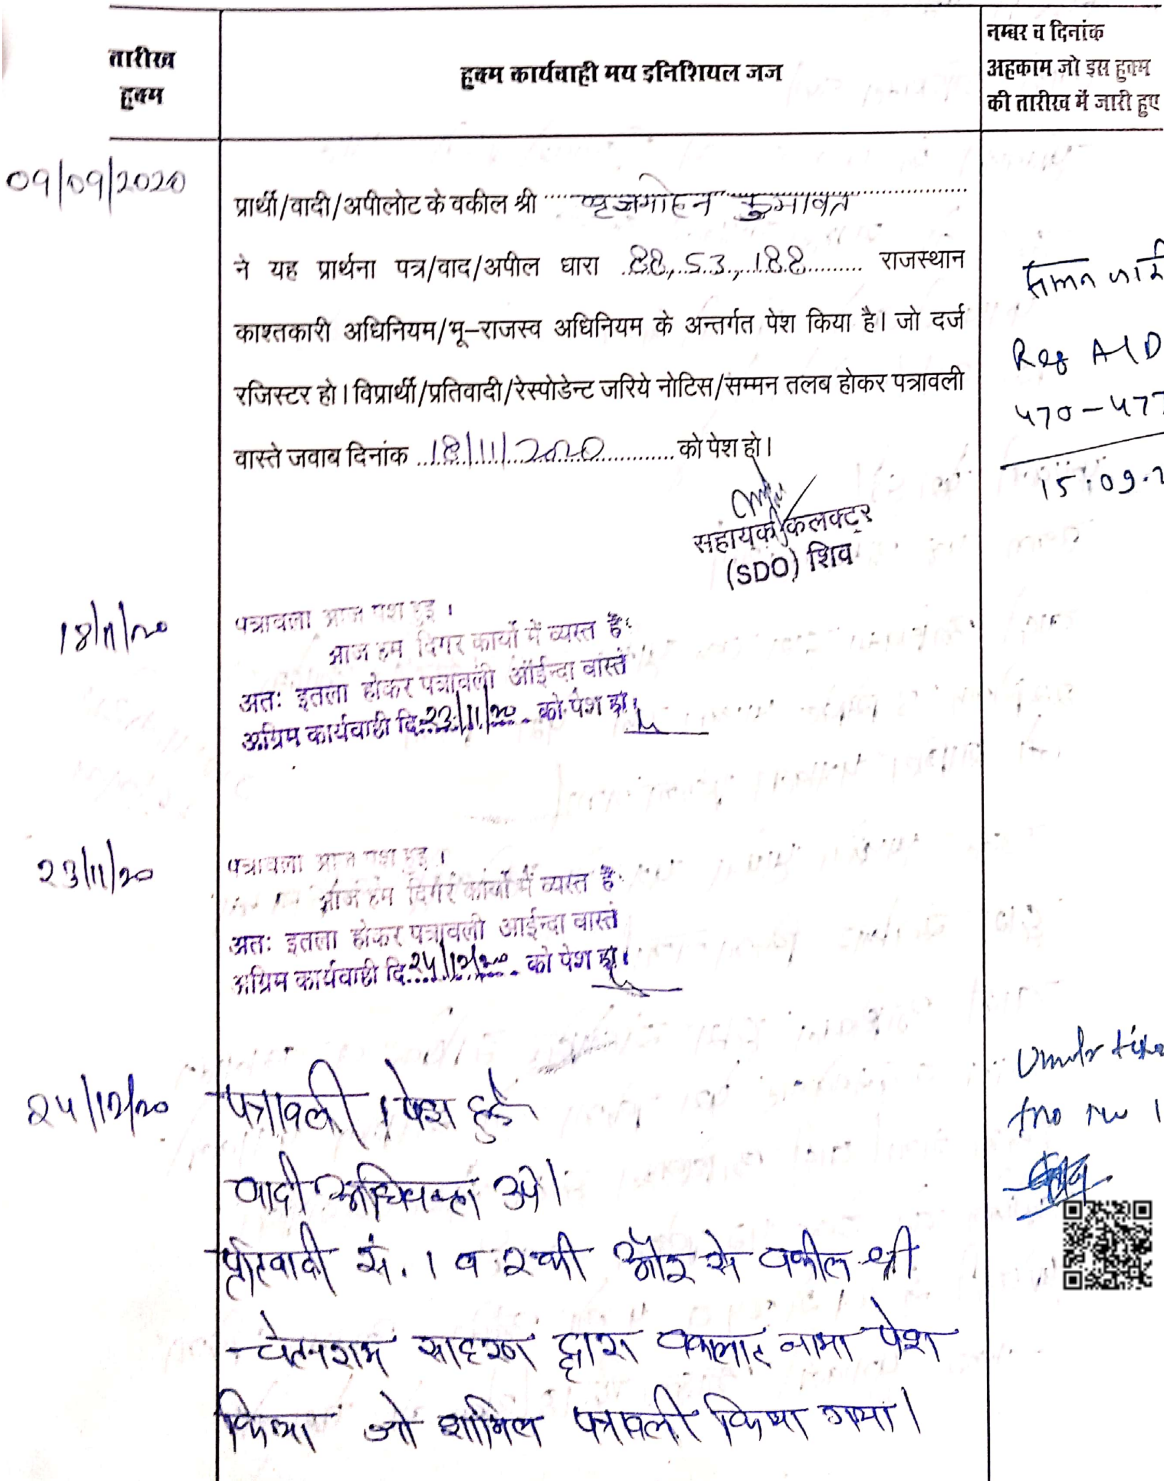 तारीख
हुक्म
हुक्म कार्यवाही मय इनिशियल जज
नम्बर व दिनांक
अहकाम जो इस हुक्म
की तारीख में जारी हुए
09/09/2020
प्रार्थी/वादी/अपीलोट के वकील श्री बृजमोहन कुमावत
ने यह प्रार्थना पत्र/वाद/अपील धारा 88, 53, 188 राजस्थान
काश्तकारी अधिनियम/भू-राजस्व अधिनियम के अन्तर्गत पेश किया है। जो दर्ज
रजिस्टर हो। विप्रार्थी/प्रतिवादी/रेस्पोडेन्ट जरिये नोटिस/सम्मन तलब होकर पत्रावली
वास्ते जवाब दिनांक 18/11/2020 को पेश हो।
Reg A/D
470-477
15.09.2
सहायक कलक्टर
(SDO) शिव
18/11/20
पत्रावली आज पेश हुई ।
आज हम दिगर कार्यो में व्यस्त है
अतः इतला होकर पत्रावली आईन्दा वास्ते
अग्रिम कार्यवाही दि. 23/11/20 को पेश हो।
23/11/20
पत्रावली आज पेश हुई ।
आज हम दिगर कार्यो में व्यस्त है
अतः इतला होकर पत्रावली आईन्दा वास्ते
अग्रिम कार्यवाही दि. 24/12/20 को पेश हो।
24/12/20
पत्रावली पेश हुई
वादी अधिवक्ता उप।
प्रतिवादी सं. 1 व 2 की और से वकील श्री
चेतनराम सारण द्वारा वकालत नामा पेश
किया जो शामिल पत्रावली किया गया।